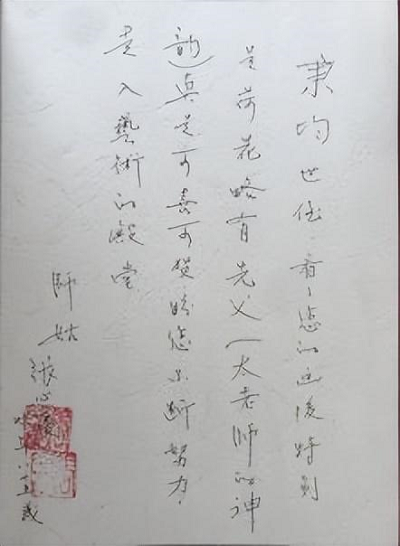 秉均世侄：看了您的画後特别
是荷花略有先父（太老师的神
韵）真是可喜可贺盼您不断努力，
走入藝術的殿堂
师姑